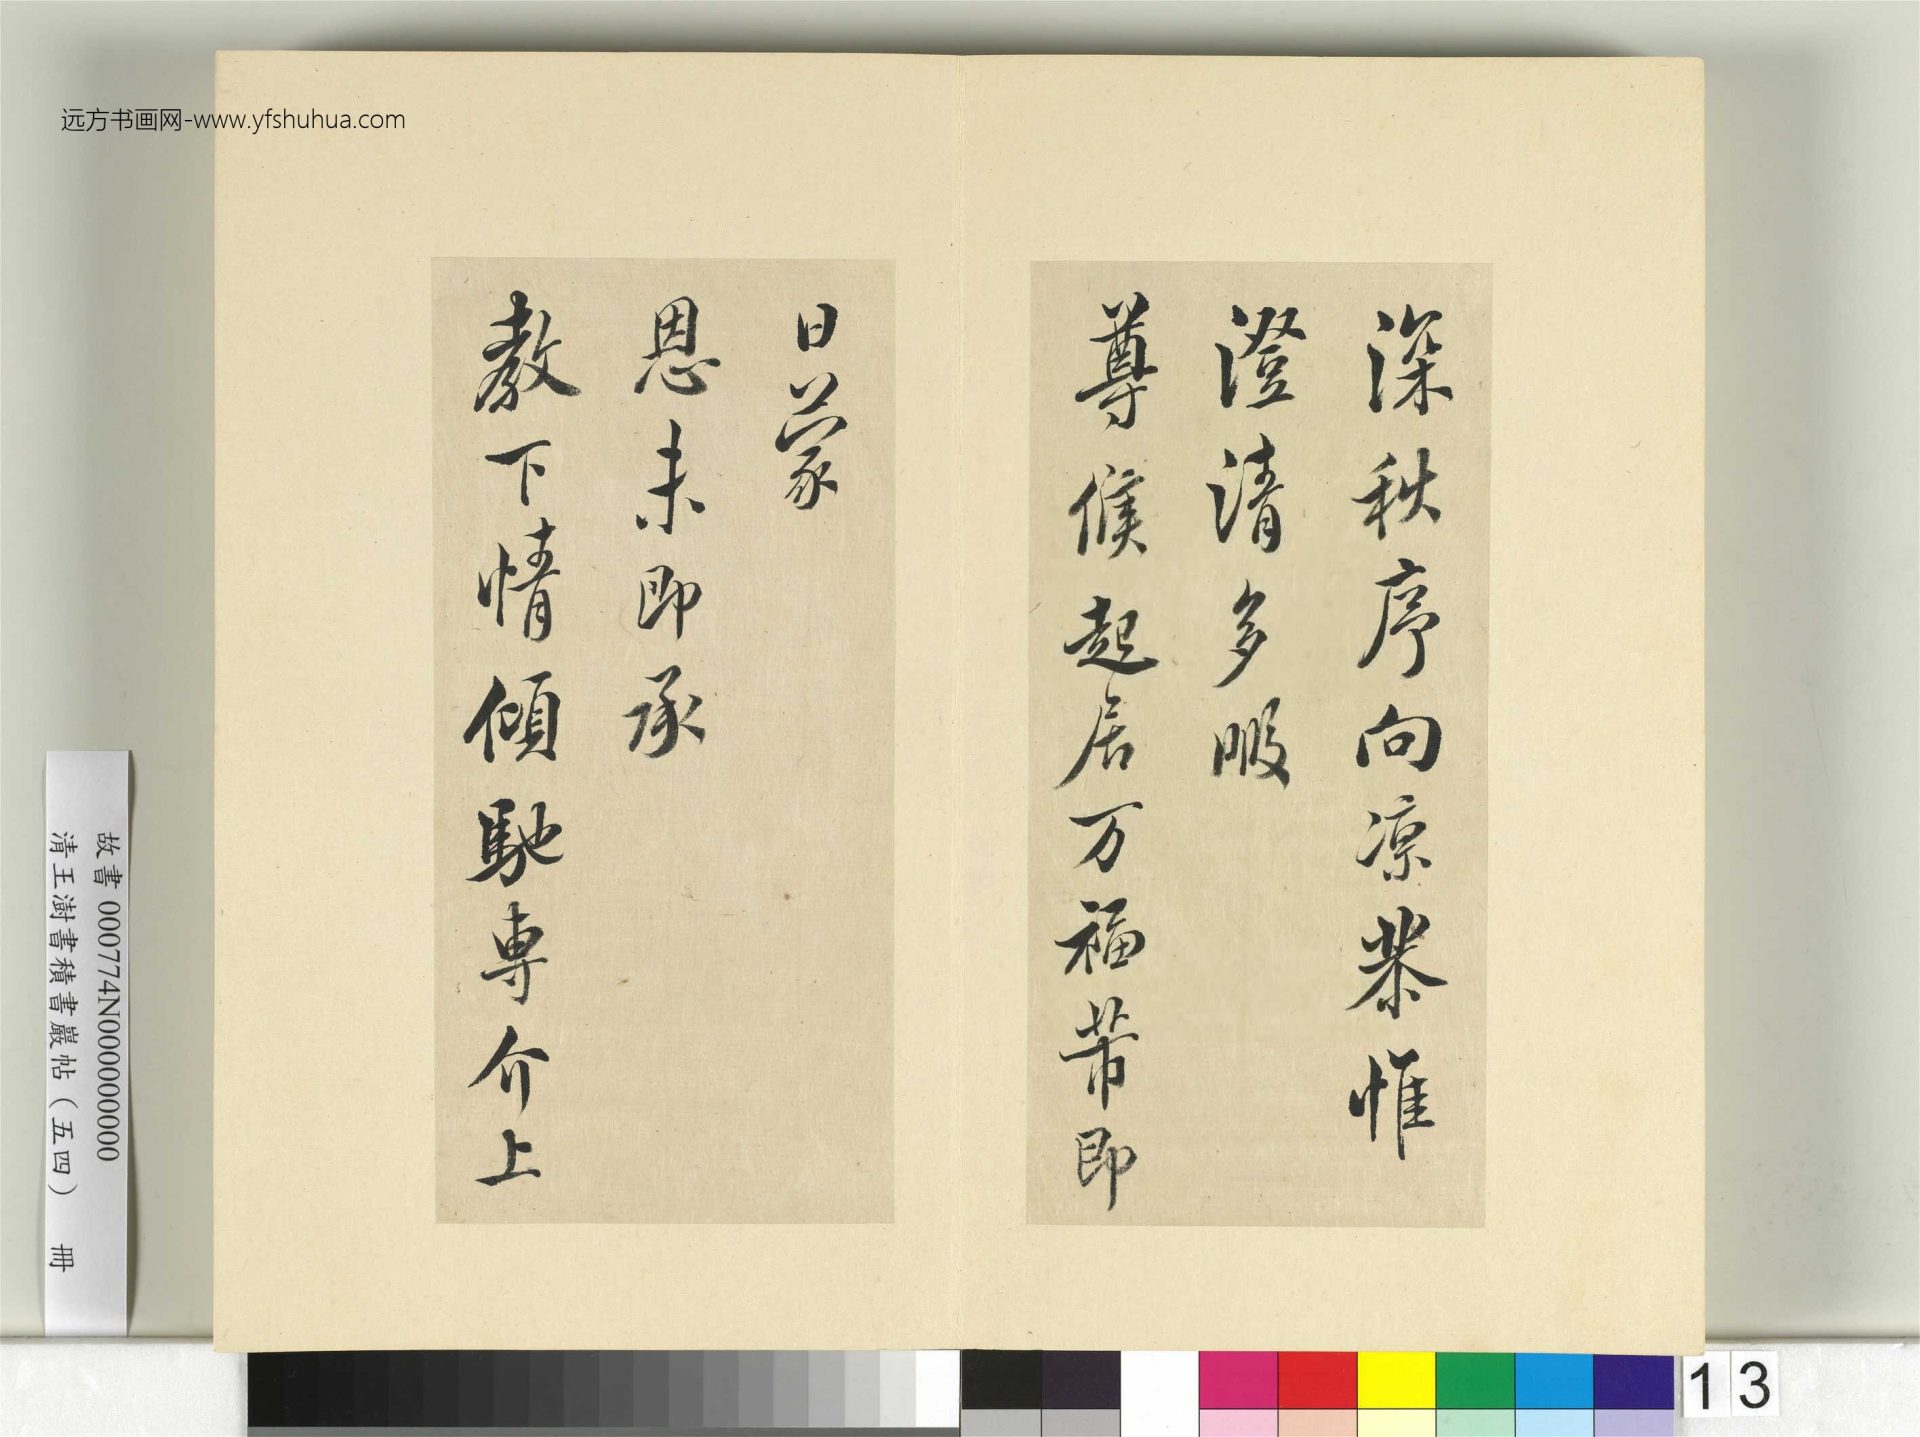 远方书画网-www.yfshuhua.com
深秋序向凉恭惟
澄清多暇
尊候起居万福芾即
日蒙
恩未即承
教下情傾馳専介上
故書 000774N000000000
清王澍書積書巖帖（五四） 冊
13